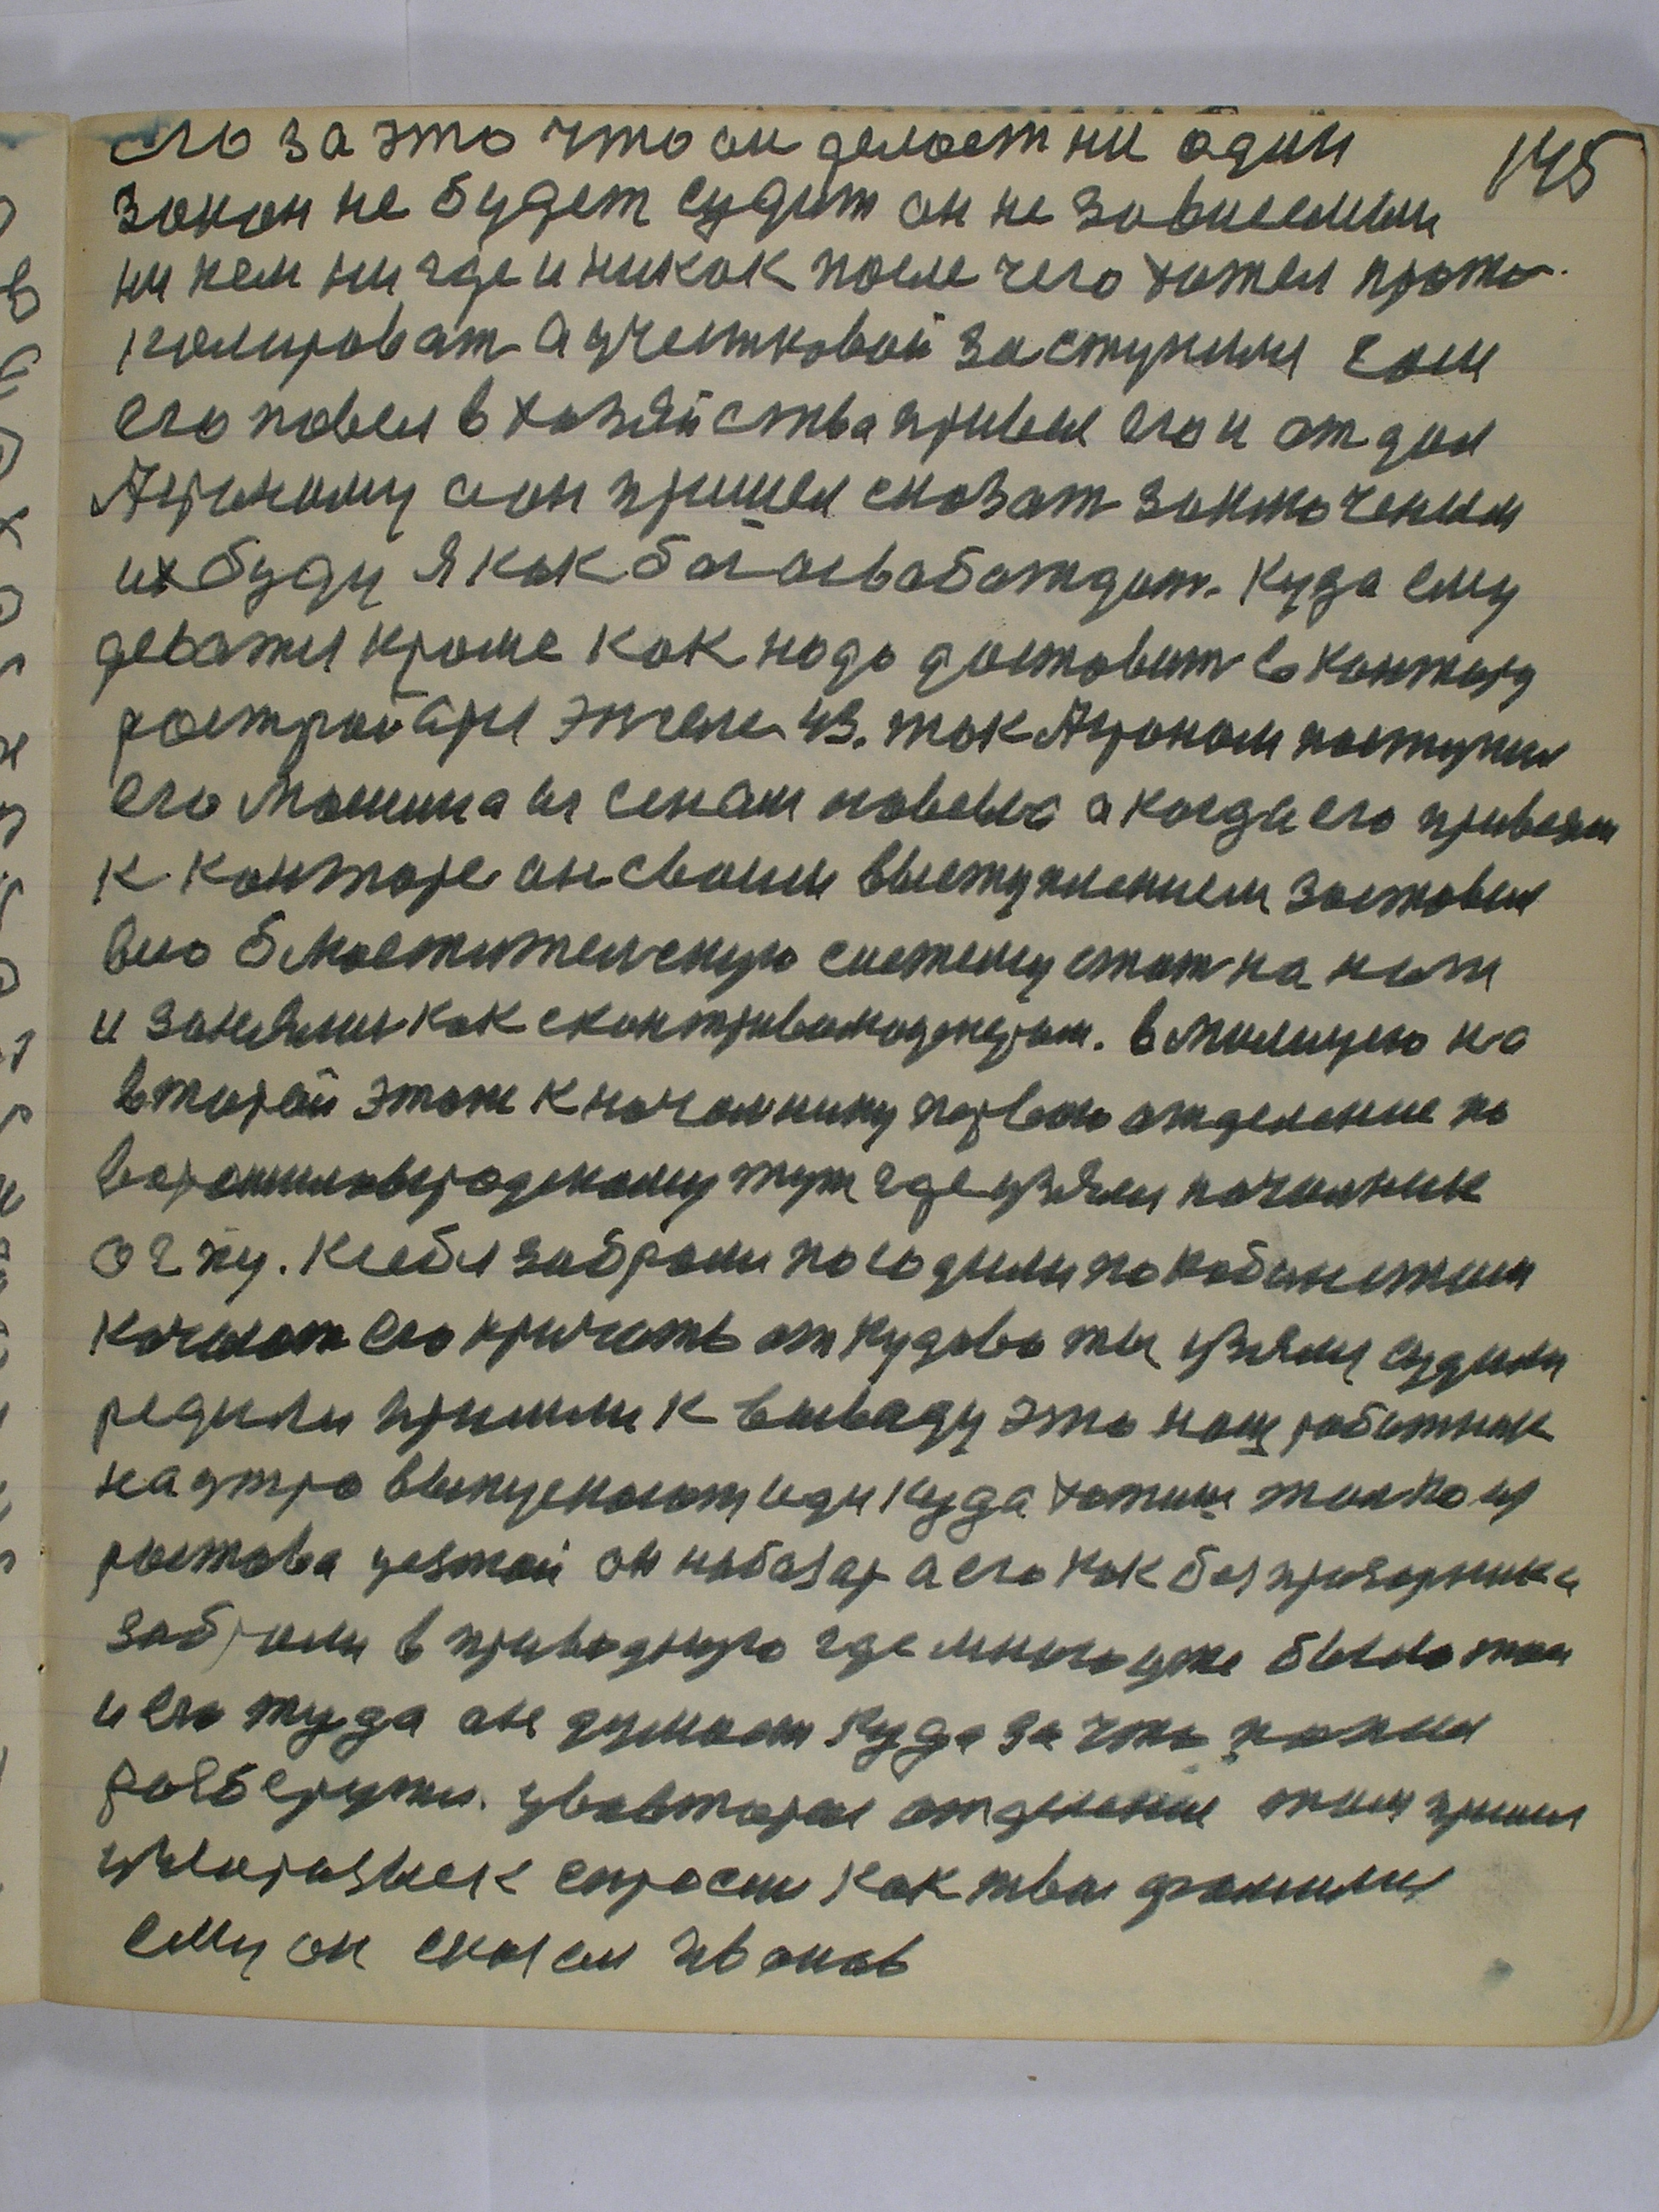 145
его за это что он делает ни один
закон не будет судит он не зависемыи
ни кем ни где и никак после чего хотел прото-
колироват а участковой заступился сам
его повел в хозяйства привел его и отдал
Агроному а он пришел сказат заключеным
их буду я как бог освабаждат. Куда ему
деватся кроме как надо доставит в контору
рострой 43. так Агроном поступил
его машина из сеном повезла а когда его привезли
к конторе он своим выступлением заставил
всю блюстительскую систему стат на ноги
и занялися как с контриванодзнрам. в милицию на
второй этаж к начальнику первого отделение по
ворошиловградскому тут где узяли начальник
огпу. к себя забрали погодили по кабинетам
начинают его кричать откудово ты узяли судили
редили пришли к выводу это наш работник
на утро выпускают иди куда хотиш только из
ростова уезжай он на базар а его как безпризорника
забрали в приводную где много уже было там
и его туда он думает куда за что попал
разберутся. у во втором отделение там пришел
спросил как твоя фамилия
ему он сказал Иванов